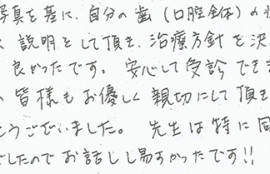 写真を基に、自分の歯（口腔全体）の
説明をして頂き、治療方針を決
良かったです。 安心して受診でき
の皆様もお優しく親切にして頂き
とうございました。 先生は特に同
でしたのでお話しし易すかったです!!